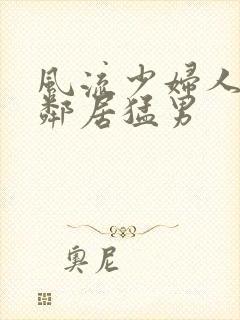 风流少婦人
鄰居猛男
奥尼